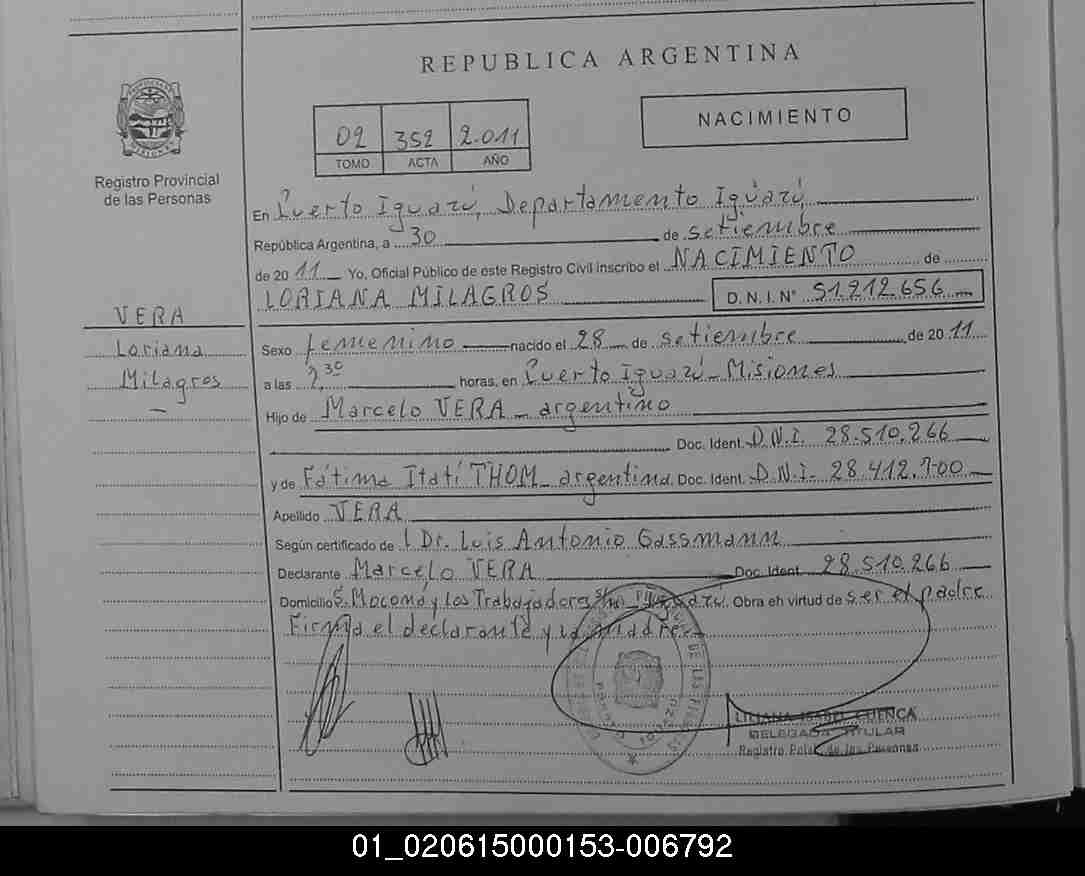 REPUBLICA ARGENTINA
NACIMIENTO
02 352 2.011
TOMO ACTA AÑO
Registro Provincial
de las Personas
En Puerto Iguazú, Departamento Iguazú,
República Argentina, a 30 de setiembre
de 20 11 Yo, Oficial Público de este Registro Civil inscribo el NACIMIENTO de
LORIANA MILAGROS D.N.I. Nº 51.212.656
VERA
Loriana
Milagros
Sexo femenino nacido el 28 de setiembre de 20 11
a las 2,30 horas, en Puerto Iguazú - Misiones
Hijo de Marcelo VERA - argentino
Doc. Ident. D.N.I. 28.510.266
y de Fátima Itatí THOM - argentina. Doc. Ident. D.N.I. 28.412.700
Apellido VERA
Según certificado de Dr. Luis Antonio Gassmann
Declarante Marcelo VERA Doc. Ident. 28.510.266
Domicilio S. Mocona y los Trabajadores s/n Iguazú. Obra en virtud de ser el padre
Firma el declarante y la madre
LILIANA ISABEL CUENCA
DELEGADA TITULAR
Registro Pcial. de las Personas
01_020615000153-006792